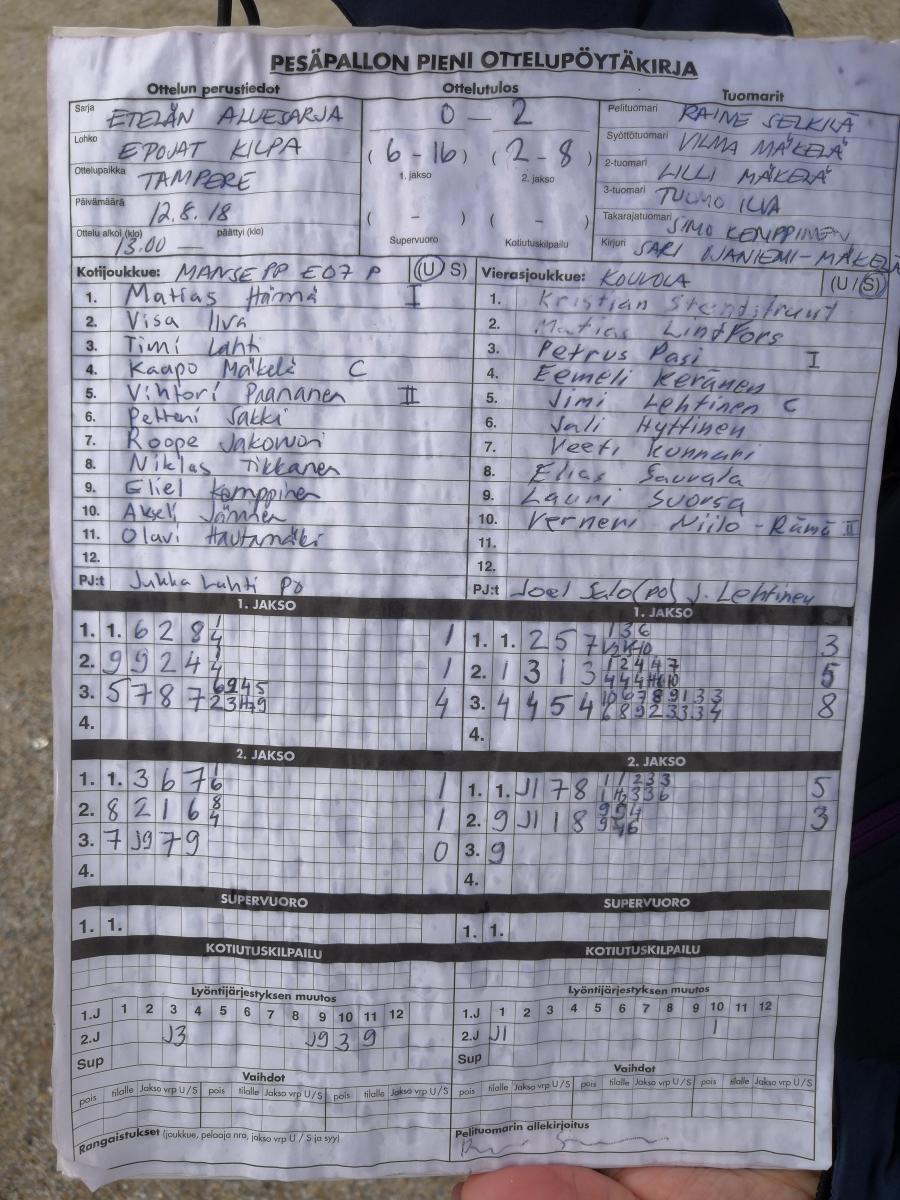 PESÄPALLON PIENI OTTELUPÖYTÄKIRJA
Ottelun perustiedot
Sarja ETELÄN ALUESARJA
Lohko EPOJAT KILPA
Ottelupaikka TAMPERE
Päivämäärä 12.8.18
Ottelu alkoi (klo) 13.00 — päättyi (klo)
Ottelutulos
0 — 2
(6 - 16) (2 - 8)
1. jakso 2. jakso
( - ) ( - )
Supervuoro Kotiutuskilpailu
Tuomarit
Pelituomari RAINE SELKILÄ
Syöttötuomari VILMA MÄKELÄ
2-tuomari LILLI MÄKELÄ
3-tuomari TUOMO ILVA
Takarajatuomari SIMO KEMPPINEN
Kirjuri SARI WANIEMI-MÄKELÄ
Kotijoukkue: MANSE PP E07 P (U S)
1. Matias Härmä I
2. Visa Ilva
3. Timi Lahti
4. Kaapo Mäkelä C
5. Vihtori Paananen II
6. Petteri Sakki
7. Roope
8. Niklas Tikkanen
9. Eliel Kemppinen
10. Akseli
11. Olavi Hautamäki
12.
PJ:t Jukka Lahti PO
Vierasjoukkue: KOUVOLA (U / S)
1. Kristian
2. Matias Lindfors
3. Petrus Pasi I
4. Eemeli Keränen
5. Jimi Lehtinen C
6. Sali Hyttinen
7. Veeti Kunnari
8. Elias Saurala
9. Lauri Suorsa
10. Verneri Niilo-Rämä II
11.
12.
PJ:t Joel Salo (PO) J. Lehtinen
1. JAKSO
1. 1. 6 2 8 4 1 1
2. 9 9 2 4 4 1
3. 5 7 8 7 4
4.
1. JAKSO
1. 1. 2 5 7 1 3 6 3
2. 1 3 1 3 1 2 4 4 7 5
3. 4 4 5 4 10 6 7 8 9 1 3 3 6 8 9 2 3 3 3 4 8
4.
2. JAKSO
1. 1. 3 6 7 1 6 1
2. 8 2 1 6 8 4 1
3. 7 J9 7 9 0
4.
2. JAKSO
1. 1. J1 7 8 1 1 2 3 3 5
2. 9 J1 1 8 9 9 4 3
3. 9
4.
SUPERVUORO
1. 1.
SUPERVUORO
1. 1.
KOTIUTUSKILPAILU
KOTIUTUSKILPAILU
Lyöntijärjestyksen muutos
1.J 1 2 3 4 5 6 7 8 9 10 11 12
2.J J3 J9 3 9
Sup
Lyöntijärjestyksen muutos
1.J 1 2 3 4 5 6 7 8 9 10 11 12
2.J J1 1
Sup
Vaihdot
pois tilalle Jakso vrp U/S pois tilalle Jakso vrp U/S pois tilalle Jakso vrp U/S
Vaihdot
pois tilalle Jakso vrp U/S pois tilalle Jakso vrp U/S pois tilalle Jakso vrp U/S
Rangaistukset (joukkue, pelaaja nro, jakso vrp U / S ja syy)
Pelituomarin allekirjoitus